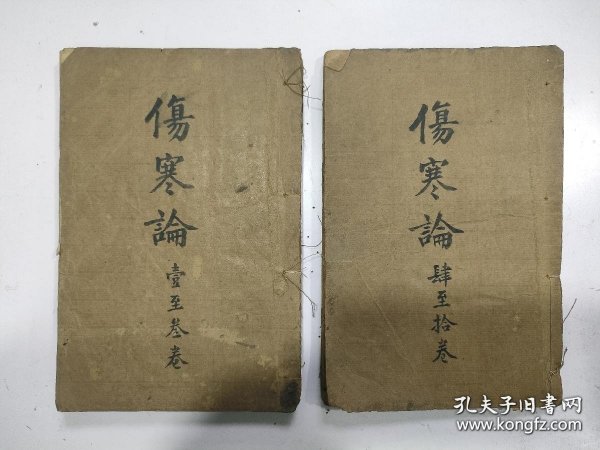 傷寒論 壹至叄卷
傷寒論 肆至拾卷
孔夫子旧書网
www.kongfz.com